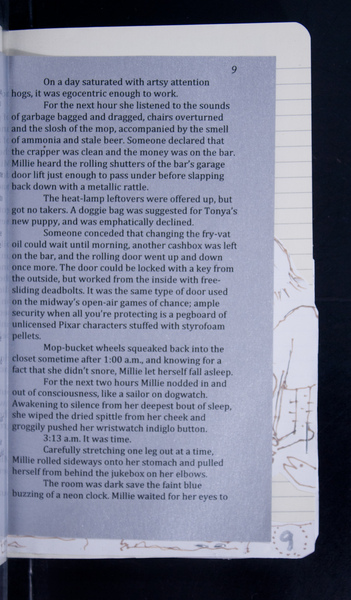 9
On a day saturated with artsy attention
hogs, it was egocentric enough to work.
For the next hour she listened to the sounds
of garbage bagged and dragged, chairs overturned
and the slosh of the mop, accompanied by the smell
of ammonia and stale beer. Someone declared that
the crapper was clean and the money was on the bar.
Millie heard the rolling shutters of the bar's garage
door lift just enough to pass under before slapping
back down with a metallic rattle.
The heat-lamp leftovers were offered up, but
got no takers. A doggie bag was suggested for Tonya's
new puppy, and was emphatically declined.
Someone conceded that changing the fry-vat
oil could wait until morning, another cashbox was left
on the bar, and the rolling door went up and down
once more. The door could be locked with a key from
the outside, but worked from the inside with free-
sliding deadbolts. It was the same type of door used
on the midway's open-air games of chance; ample
security when all you're protecting is a pegboard of
unlicensed Pixar characters stuffed with styrofoam
pellets.
Mop-bucket wheels squeaked back into the
closet sometime after 1:00 a.m., and knowing for a
fact that she didn't snore, Millie let herself fall asleep.
For the next two hours Millie nodded in and
out of consciousness, like a sailor on dogwatch.
Awakening to silence from her deepest bout of sleep,
she wiped the dried spittle from her cheek and
groggily pushed her wristwatch indiglo button.
3:13 a.m. It was time.
Carefully stretching one leg out at a time,
Millie rolled sideways onto her stomach and pulled
herself from behind the jukebox on her elbows.
The room was dark save the faint blue
buzzing of a neon clock. Millie waited for her eyes to
9